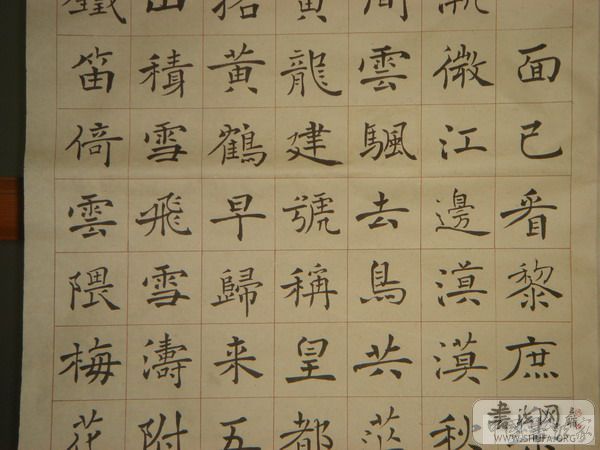 面已看黎庶
微江邊漠漠秋
間雲颿去鳥共茫
黃龍建號稱皇都
黃鶴早歸来五
山積雪飛雪濤附
鐵笛倚雲隈梅花
書法网
WWW.SHUFA.ORG